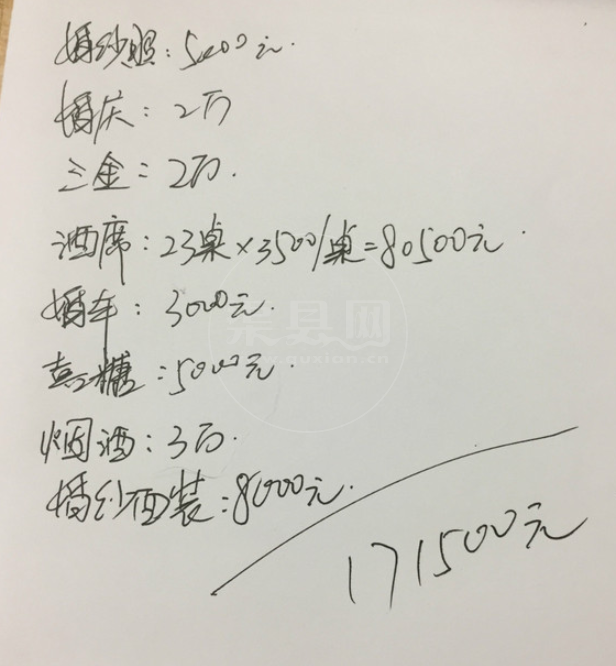 婚纱照：5000元.
婚庆：2万
三金：2万.
酒席：23桌×3500/桌=80500元.
婚车：3000元.
喜糖：5000元.
烟酒：3万.
婚纱西装：8000元.
171500元
渠县网